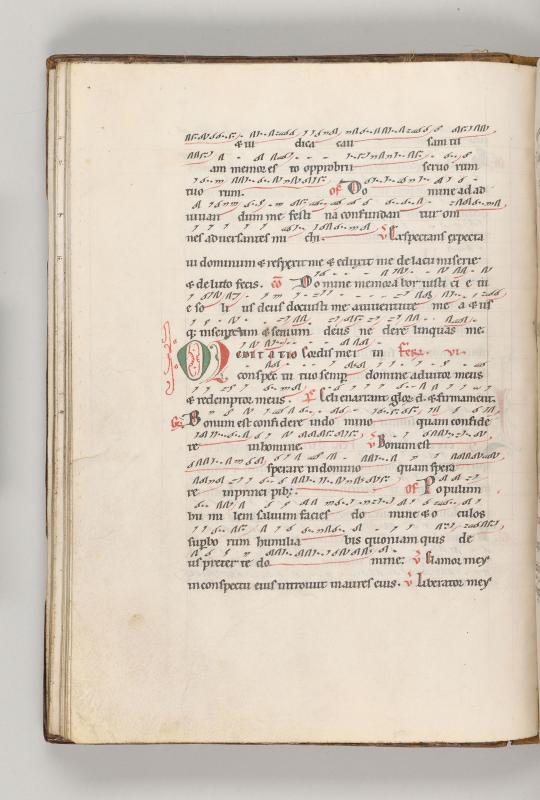 ⁊ ui dica cau sam tu
am memor es to opprobrii seruo rum
tuo rum. of Do mine ad ad
iuuan dum me festi na confundan tur om
nes aduersantes mi chi. v̄ Exspectans expecta
ui dominum ⁊ respexit me ⁊ eduxit me de lacu miserie
⁊ de luto fecis. cō Domine memorabor iusti ci e tu
e so li us deus docuisti me a iuuentute me a ⁊ us
q; in senectam ⁊ senium deus ne dere linquas me.
MEDITATIO cordis mei in feria. vi.
conspec tu tuo semp domine adiutor meus
⁊ redemptor meus. ps Celi enarrant glor d. ⁊ firmament.
Bonum est confidere in do mino quam confide
re in homine. v̄ Bonum est
sperare in domino quam spera
re in princi pib;. of Populum
hu mi lem saluum facies do mine ⁊ o culos
supbo rum humilia bis quoniam quis de
us preter te do mine. v̄ Clamor meus
in conspectu eius introiuit in aures eius. v̄ Liberator meus